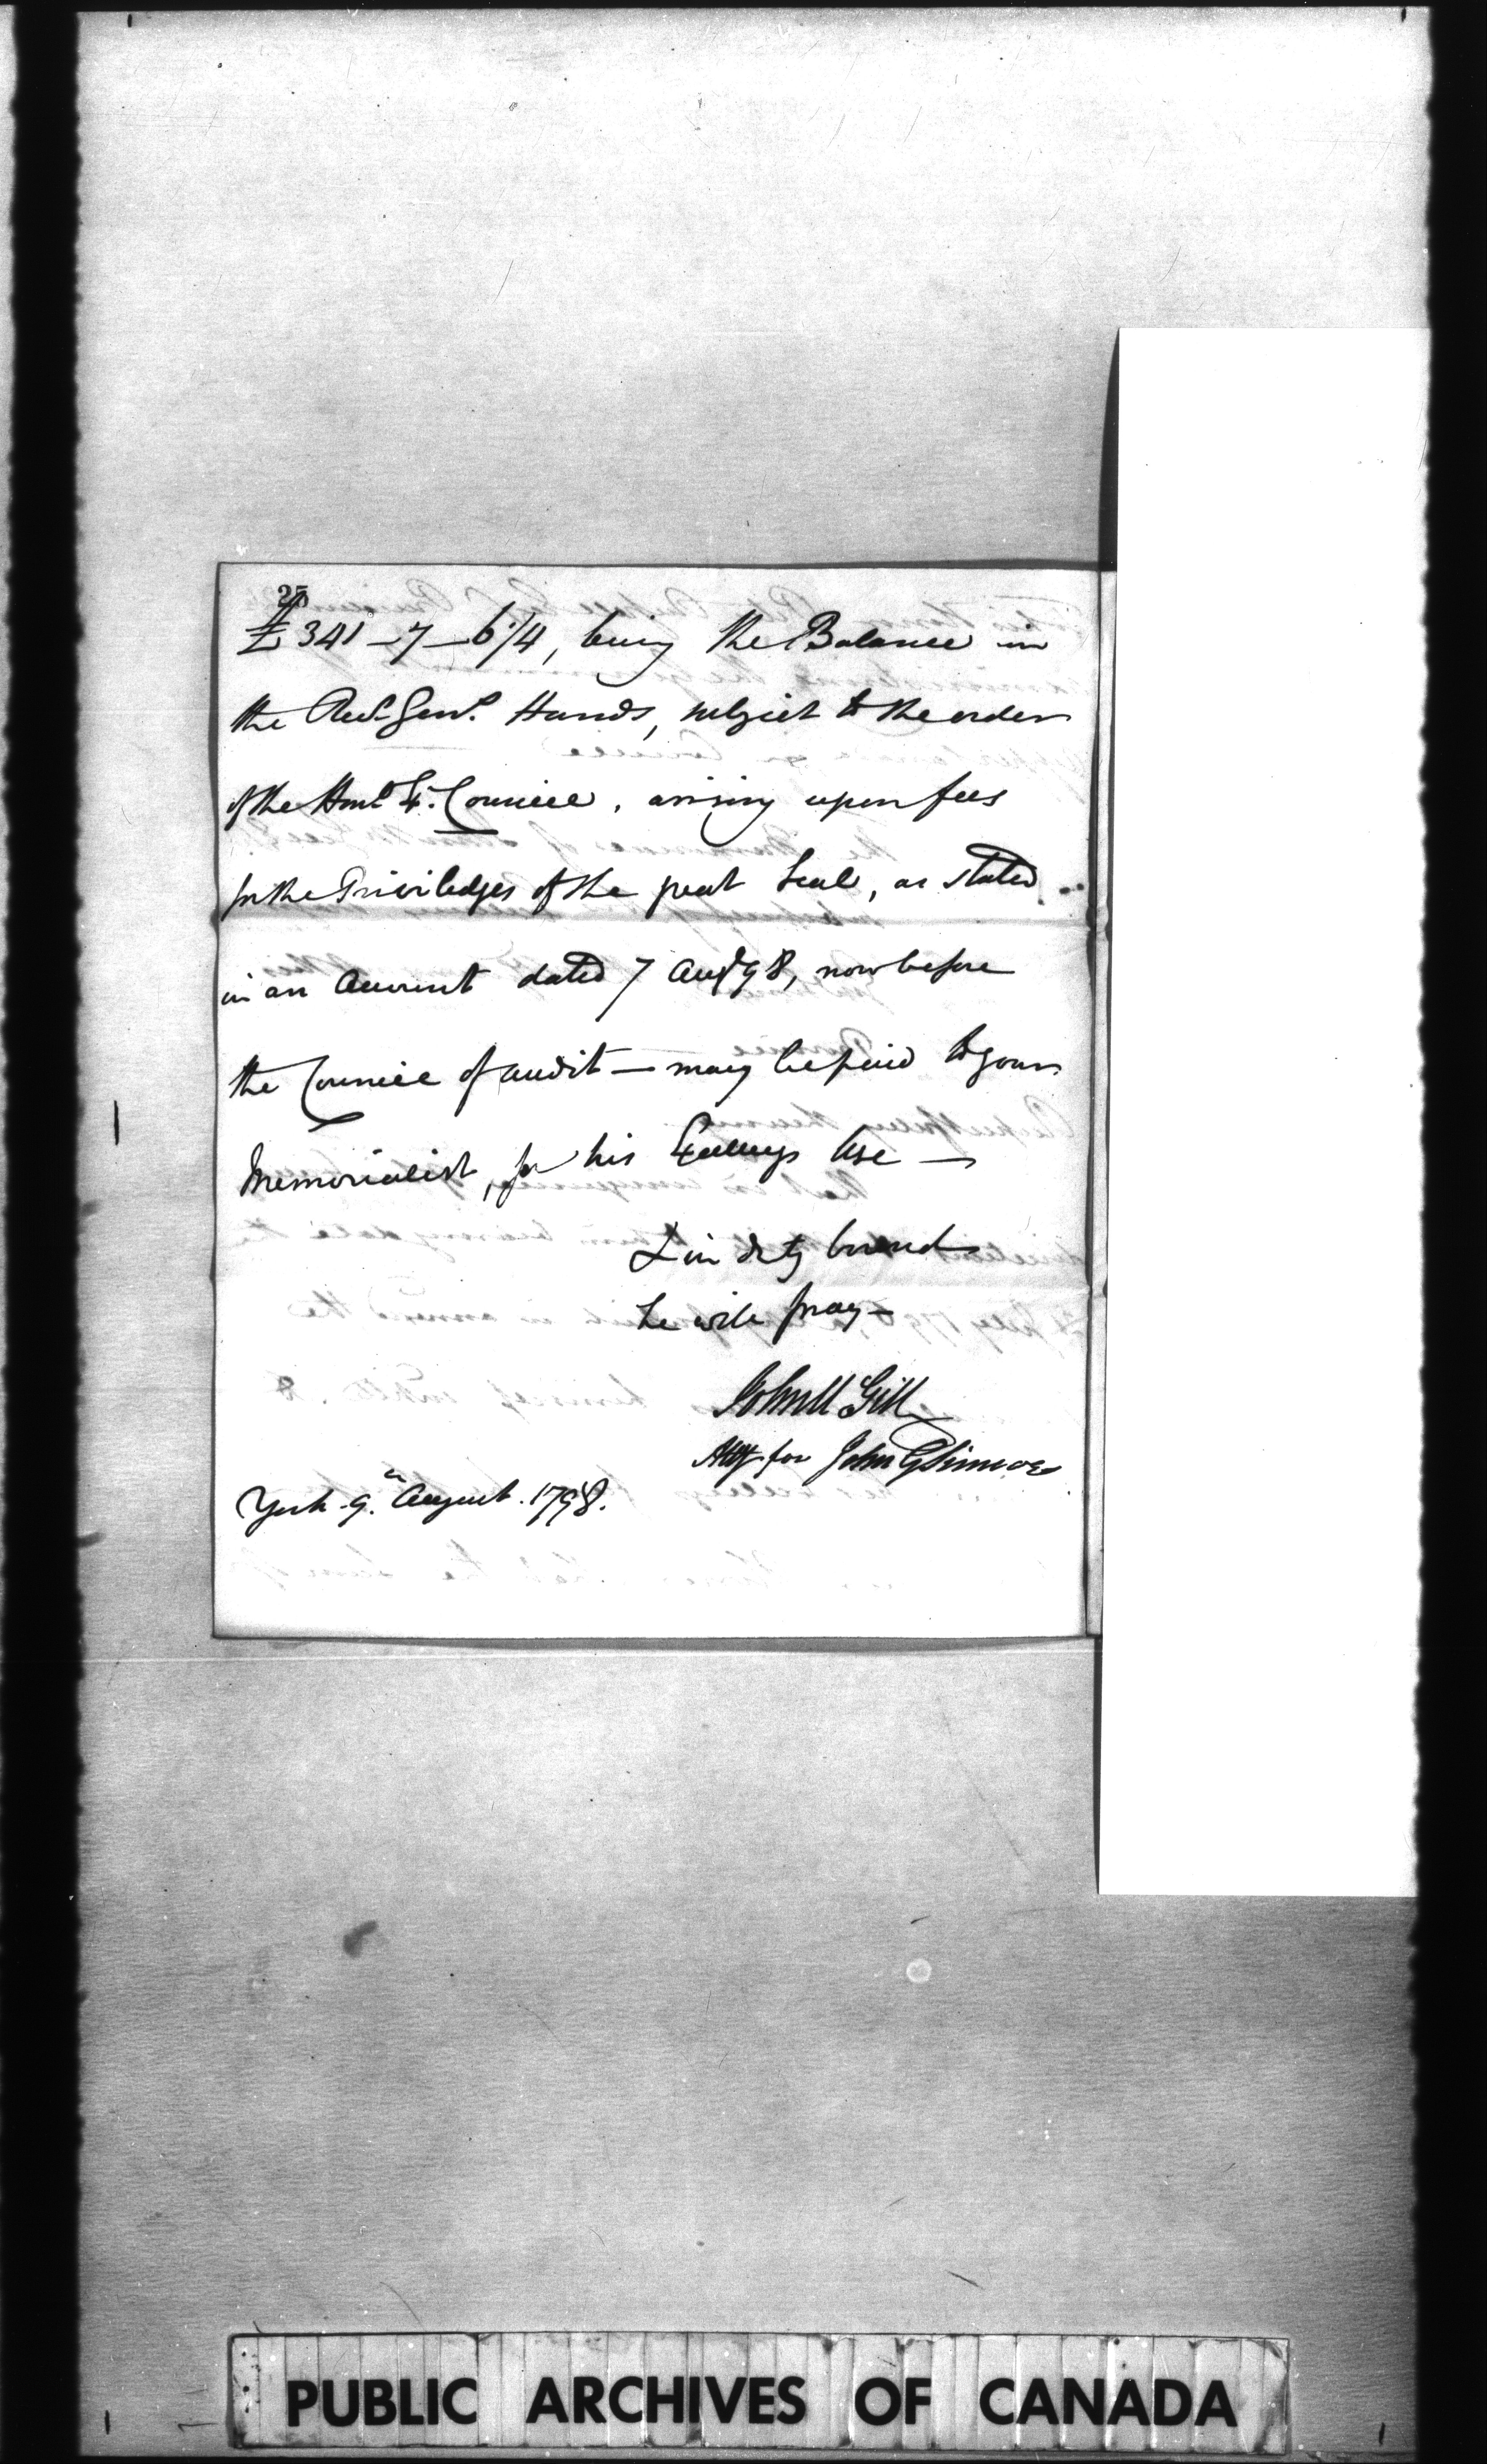 25
£341-7-6 1/4, being the Balance in
the Recr. Genl. Hands, subject to the order
of the Honl. Ex. Councill, arising upon fees
for the Priviledges of the great Seal, as stated
in an Account dated 7 Augt 98, now before
the Councill of audit — may be paid to your
Memorialist, for his Excellencys Use —
& in duty bound
he will pray —
John M Gill
Atty for John G Simcoe
York 9. August. 1798.
PUBLIC ARCHIVES OF CANADA